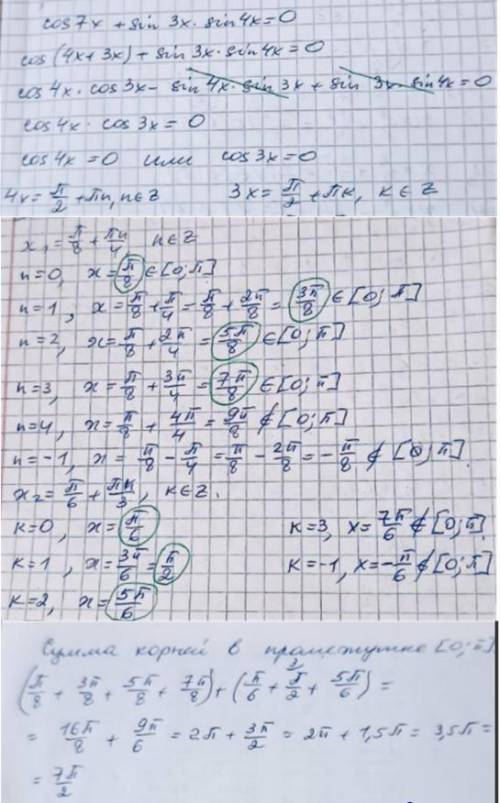 cos7x + sin 3x · sin4x = 0
cos (4x + 3x) + sin 3x · sin4x = 0
cos 4x · cos 3x - sin 4x · sin 3x + sin 3x · sin 4x = 0
cos4x · cos 3x = 0
cos4x = 0 или cos3x = 0
4x = π/2 + πn, n∈Z 3x = π/2 + πk, k∈Z
x₁ = π/8 + πn/4, n∈Z
n=0, x = π/8 ∈ [0; π]
n=1, x = π/8 + π/4 = π/8 + 2π/8 = 3π/8 ∈ [0; π]
n=2, x = π/8 + 2π/4 = 5π/8 ∈ [0; π]
n=3, x = π/8 + 3π/4 = 7π/8 ∈ [0; π]
n=4, x = π/8 + 4π/4 = 9π/8 ∉ [0; π]
n=-1, x = π/8 - π/4 = π/8 - 2π/8 = -π/8 ∉ [0; π].
x₂ = π/6 + πk/3, k∈Z.
k=0, x = π/6 k=3, x = 7π/6 ∉ [0; π]
k=1, x = 3π/6 = π/2 k=-1, x = -π/6 ∉ [0; π]
k=2, x = 5π/6
Сумма корней в промежутке [0; π]
(π/8 + 3π/8 + 5π/8 + 7π/8) + (π/6 + ³π/2 + 5π/6) =
= 16π/8 + 9π/6 = 2π + 3π/2 = 2π + 1,5π = 3,5π =
= 7π/2